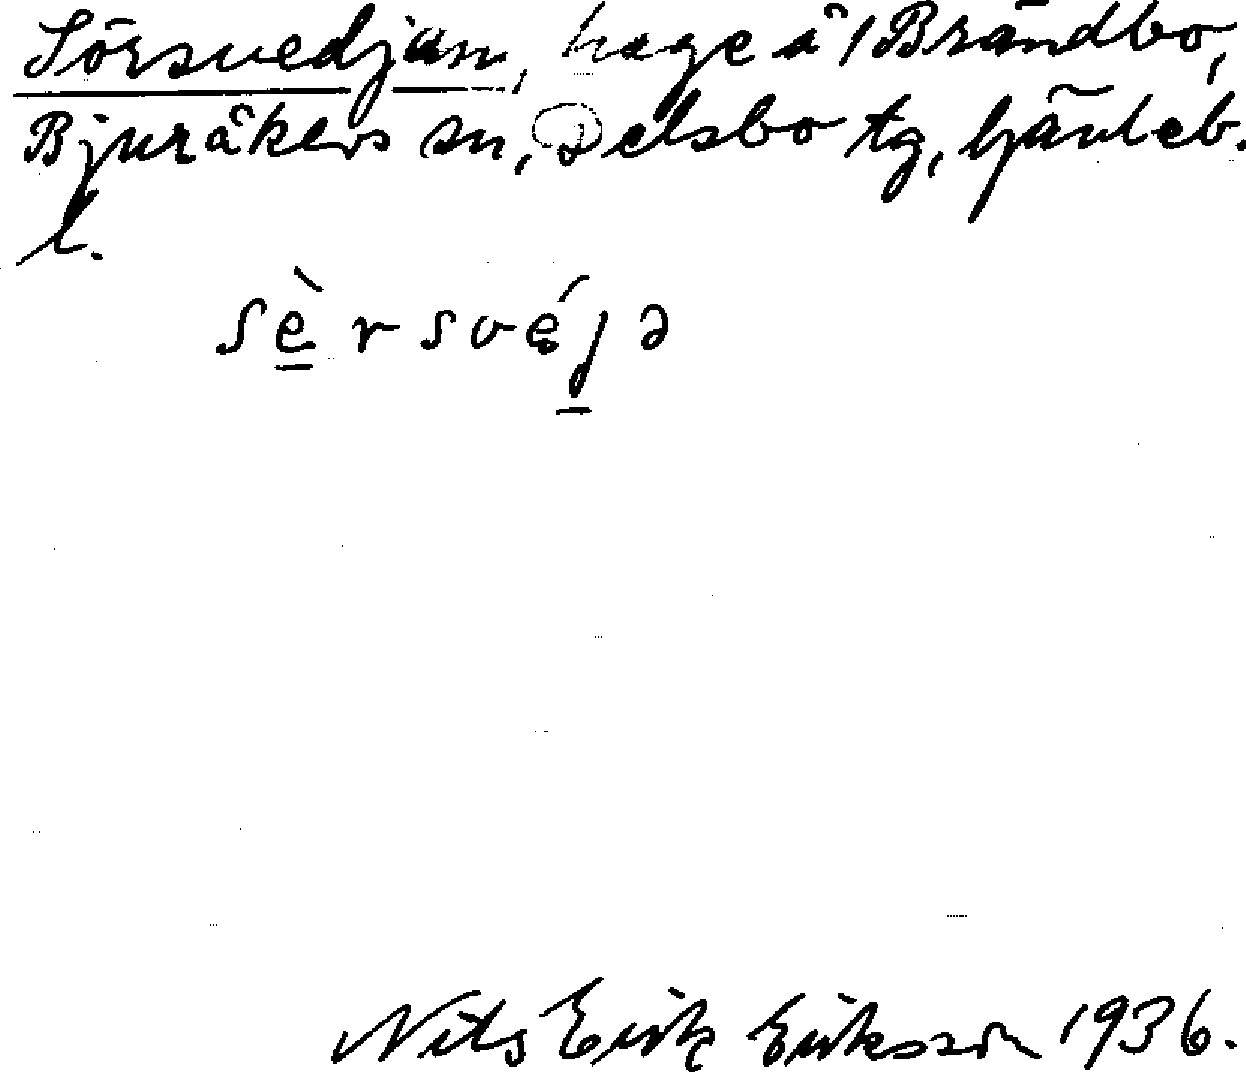 Sörsvedjan, hage å 1 Brändbo,
Bjuråkers sn, Delsbo tg, Gävleb.
l.
sè̱rsvé̜j̱ə
Nils Erik Eriksson 1936.